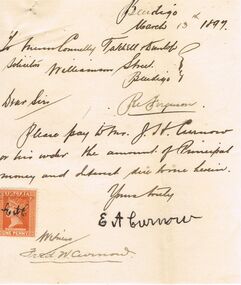 Bendigo
March 13th 1897.
To Messrs Connelly Tatchell & Dunlop
Solicitors Williamson Street
Bendigo
Dear Sirs Re Ferguson
Please pay to Mr. J. H. Curnow
or his order the amount of Principal
money and Interest due to me herein.
Yours truly
E A Curnow
ONE PENNY
Witness
Curnow